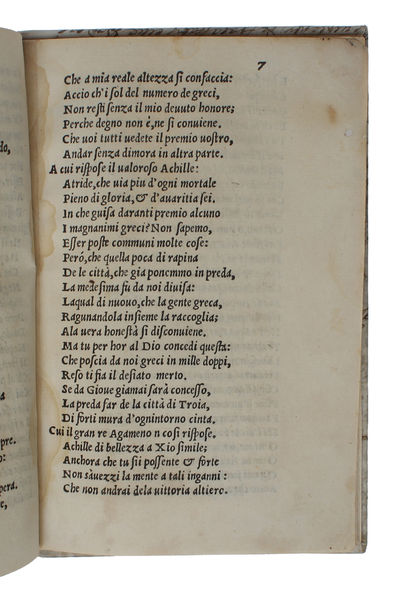 do,
pre.
o:
pera.
e,
7
Che a mia reale altezza si confaccia:
Accio ch'i sol del numero de greci,
Non resti senza il mio deuuto honore;
Perche degno non è, ne si conuiene.
Che uoi tutti uedete il premio uostro,
Andar senza dimora in altra parte.
A cui rispose il ualoroso Achille:
Atride, che uia piu d'ogni mortale
Pieno di gloria, & d'auaritia sei.
In che guisa daranti premio alcuno
I magnanimi greci? Non sapemo,
Esser poste communi molte cose:
Peró, che quella poca di rapina
De le città, che gia ponemmo in preda,
La medesima fù da noi diuisa:
Laqual di nuouo, che la gente greca,
Ragunandola insieme la raccoglia;
Ala uera honestà si disconuiene.
Ma tu per hor al Dio concedi questa:
Che poscia da noi greci in mille doppi,
Reso ti fia il desiato merto.
Se da Gioue giamai farà concesso,
La preda far de la città di Troia,
Di forti mura d'ognintorno cinta.
Cui il gran re Agameno n cosi rispose.
Achille di bellezza a Xio simile;
Anchora che tu sii possente & forte
Non sàuezzi la mente a tali inganni:
Che non andrai dela uittoria altiero.